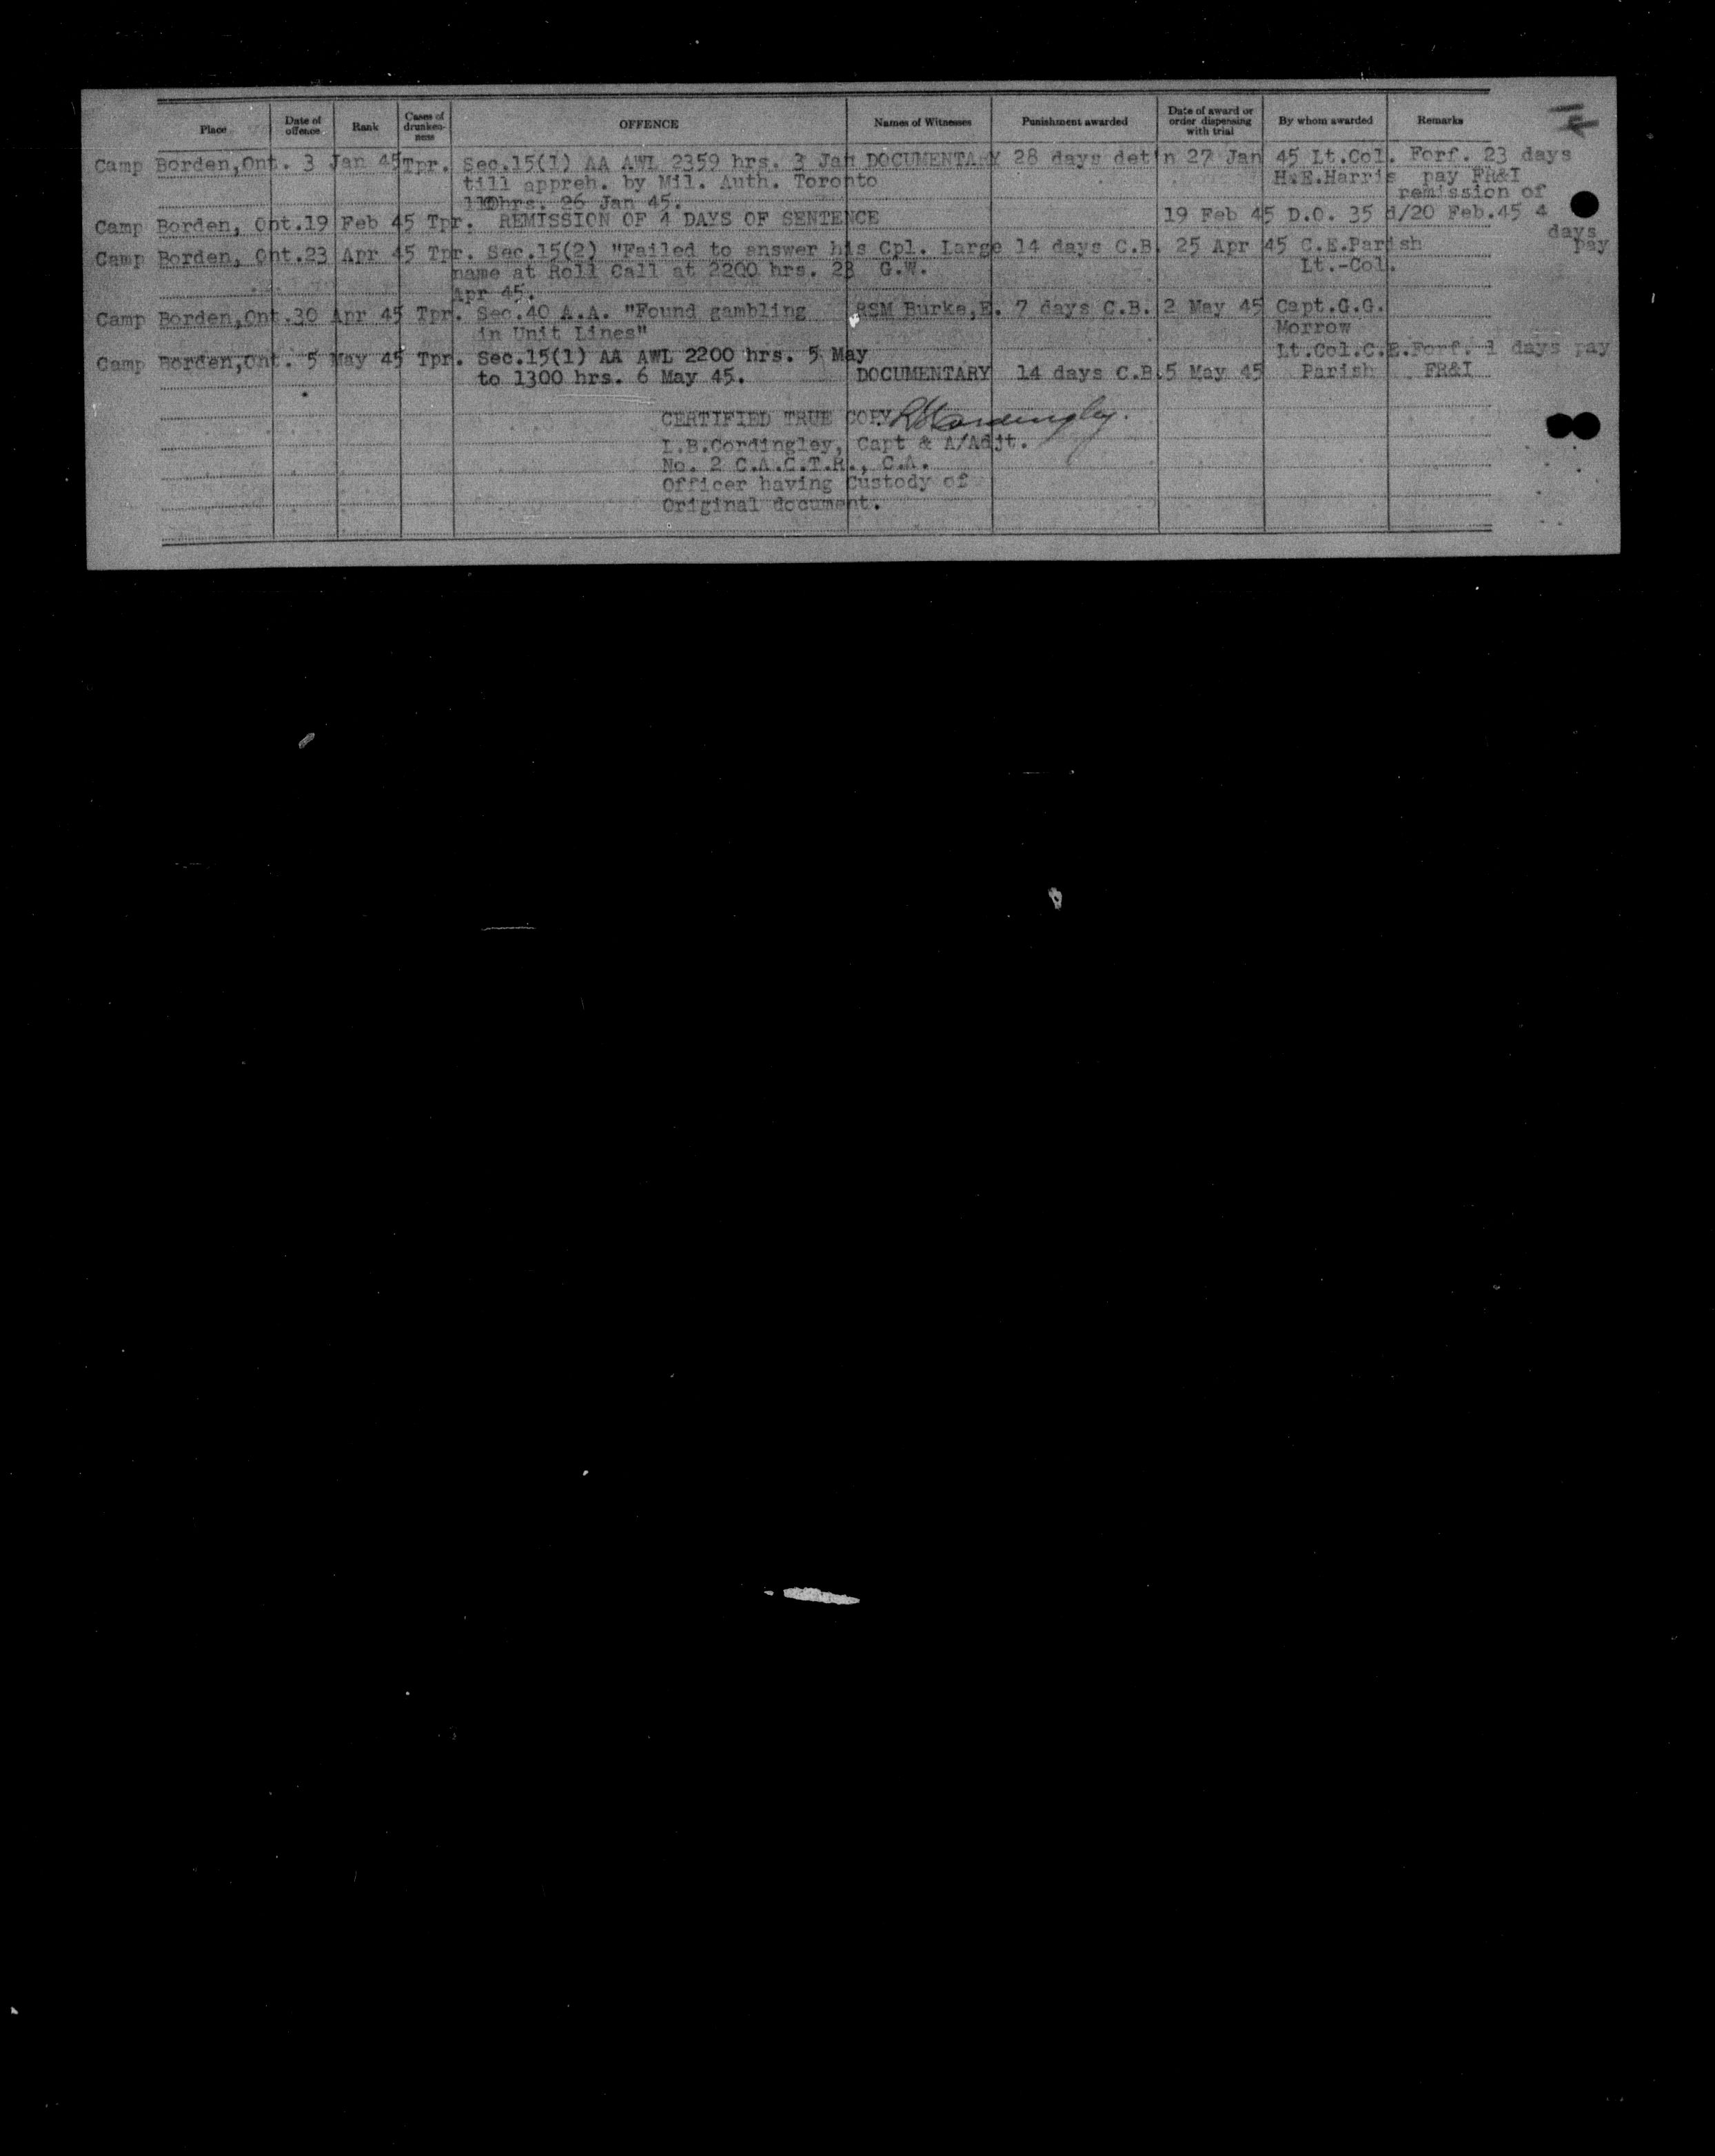 Place Date of offence Rank Cases of drunken-ness OFFENCE Names of Witnesses Punishment awarded Date of award or order dispensing with trial By whom awarded Remarks
Camp Borden,Ont. 3 Jan 45 Tpr. Sec.15(1) AA AWL 2359 hrs. 3 Jan DOCUMENTARY 28 days det'n 27 Jan 45 Lt.Col. Forf. 23 days
till appreh. by Mil. Auth. Toronto H.E.Harris pay FR&I
hrs. 26 Jan 45. remission of
Camp Borden, Ont.19 Feb 45 Tpr. REMISSION OF 4 DAYS OF SENTENCE 19 Feb 45 D.O. 35 d/20 Feb.45 4
days
Camp Borden, Ont.23 Apr 45 Tpr. Sec.15(2) "Failed to answer his Cpl. Large 14 days C.B. 25 Apr 45 C.E.Parish pay
name at Roll Call at 2200 hrs. 23 G.W. Lt.-Col.
Apr 45.
Camp Borden,Ont.30 Apr 45 Tpr. Sec.40 A.A. "Found gambling RSM Burke,E. 7 days C.B. 2 May 45 Capt.G.G.
in Unit Lines" Morrow
Camp Borden,Ont. 5 May 45 Tpr. Sec.15(1) AA AWL 2200 hrs. 5 May Lt.Col.C.E. Forf. 1 days pay
to 1300 hrs. 6 May 45. DOCUMENTARY 14 days C.B.5 May 45 Parish FR&I
CERTIFIED TRUE COPY
L.B.Cordingley, Capt & A/Adjt.
No. 2 C.A.C.T.R., C.A.
Officer having Custody of
Original document.